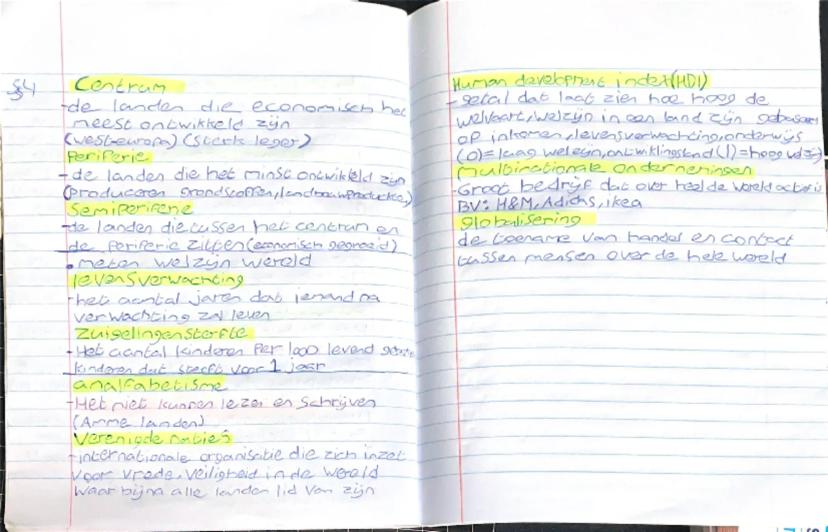 §4
Centrum
-de landen die economisch het
meest ontwikkeld zijn
(westeuropa) (sterk leger)
Periferie
-de landen die het minst ontwikkeld zijn
(produceren grondstoffen, landbouwproducten)
Semiperiferie
-de landen die tussen het centrum en
de periferie zitten (economisch gegroeid)
•meten welzijn wereld
levensverwachting
-het aantal jaren dat iemand na
verwachting zal leven
Zuigelingensterfte
-Het aantal kinderen per 1000 levend
kinderen dat sterft voor 1 jaar
analfabetisme
-Het niet kunnen lezen en schrijven
(Amme landen)
Verenigde naties
-internationale organisatie die zich inzet
voor vrede, veiligheid in de wereld
waar bijna alle landen lid van zijn
Human development index (HDI)
-getal dat laat zien hoe hoog de
welvaart, welzijn in een land zijn gebaseerd
op inkomen, levensverwachting, onderwijs
(0)=laag welzijn, ontwiklingsland (1)=hoog
multinationale ondernemingen
-Groot bedrijf dat over heel de wereld actief is
BV: H&M, Adidas, ikea
globalisering
de toename van handel en contact
tussen mensen over de hele wereld